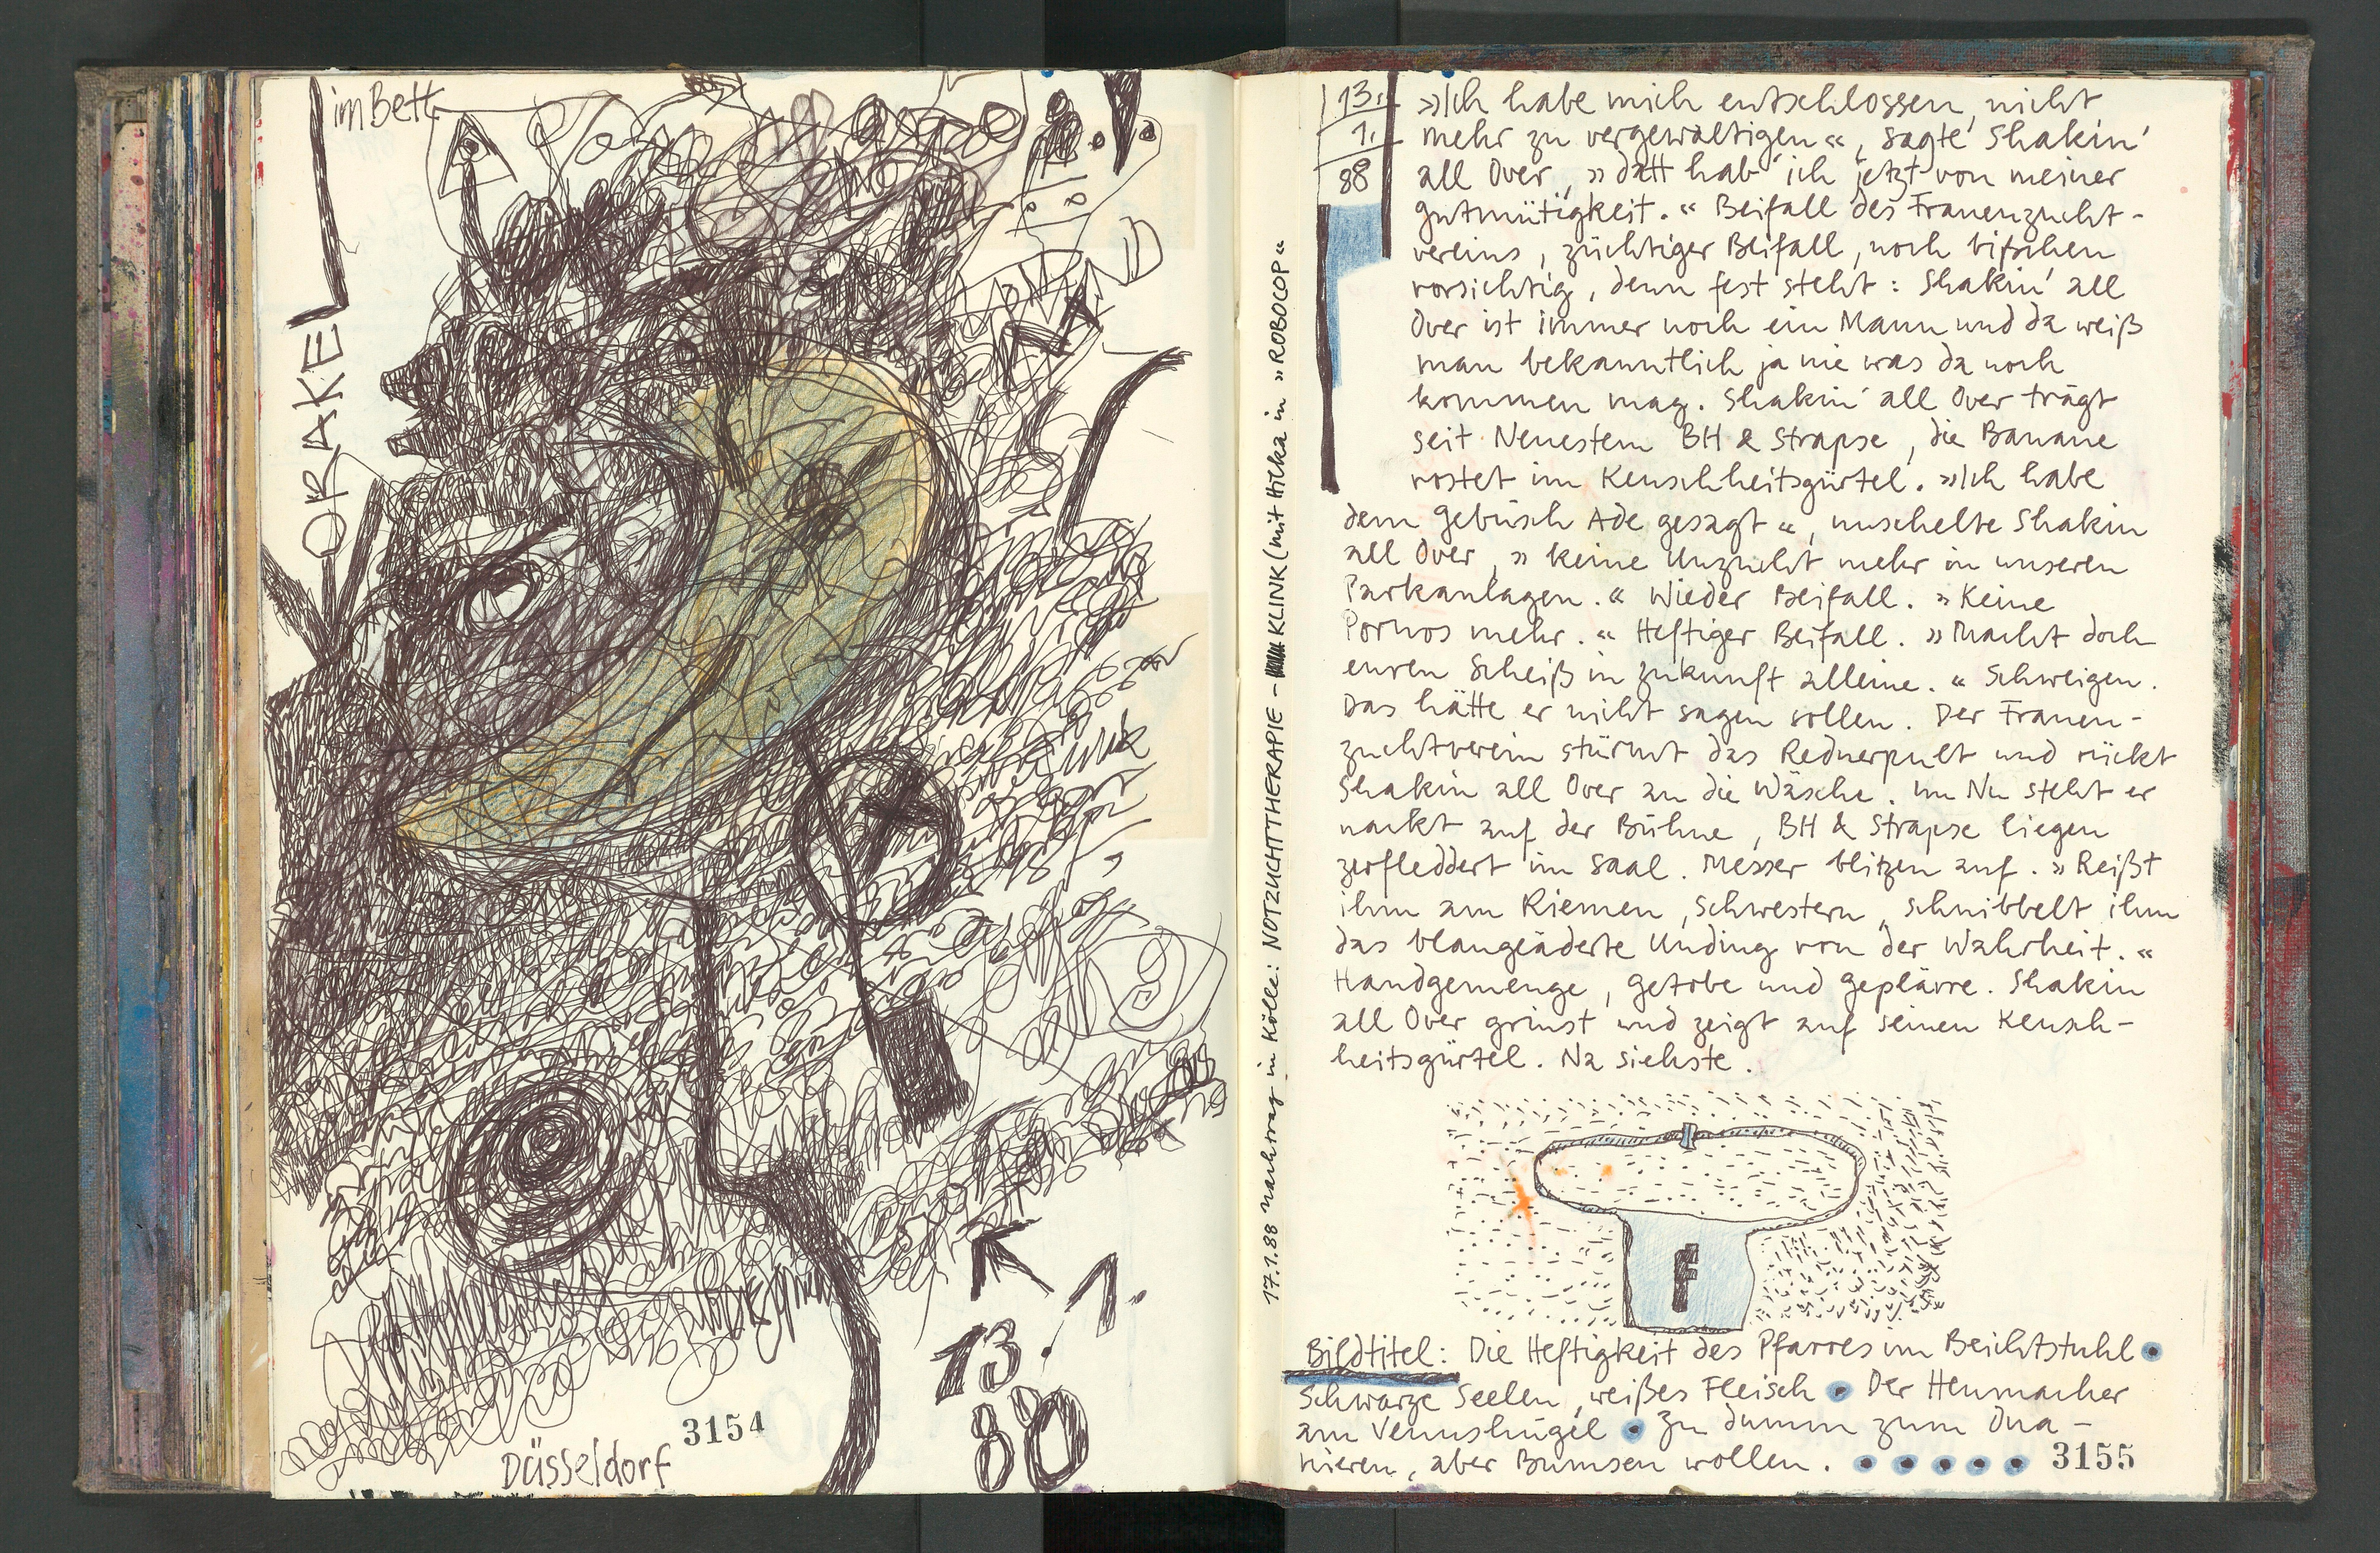 im Bett
ORAKEL
MOMBD
13. 1.
88
Düsseldorf
3154
17.1.88 Nachtrag in Kölle: NOTZUCHTTHERAPIE - KLINK (mit Hilka in »ROBOCOP«
13.
1.
88
»Ich habe mich entschlossen, nicht
mehr zu vergewaltigen«, sagte Shakin'
all Over, »datt hab' ich jetzt von meiner
Gutmütigkeit.« Beifall des Frauenzucht-
vereins, züchtiger Beifall, noch bißchen
vorsichtig, denn fest steht: Shakin' all
Over ist immer noch ein Mann und da weiß
man bekanntlich ja nie was da noch
kommen mag. Shakin' all Over trägt
seit Neuestem BH & Strapse, die Banane
rostet im Keuschheitsgürtel. »Ich habe
dem Gebüsch Ade gesagt«, nuschelte Shakin
all Over, »keine Unzucht mehr in unseren
Parkanlagen.« Wieder Beifall. »Keine
Pornos mehr.« Heftiger Beifall. »Macht doch
euren Scheiß in Zukunft alleine.« Schweigen.
Das hätte er nicht sagen sollen. Der Frauen-
zuchtverein stürmt das Rednerpult und rückt
Shakin all Over an die Wäsche. Im Nu steht er
nackt auf der Bühne, BH & Strapse liegen
zerfleddert im Saal. Messer blitzen auf. »Reißt
ihm am Riemen, Schwestern, schnibbelt ihm
das blaugeäderte Unding von der Wahrheit.«
Handgemenge, Getobe und Geplärre. Shakin
all Over grinst und zeigt auf seinen Keusch-
heitsgürtel. Na siehste.
f
Bildtitel: Die Heftigkeit des Pfarres im Beichtstuhl •
Schwarze Seelen, weißes Fleisch • Der Heumacher
am Venushügel • Zu dumm zum Ona-
nieren, aber Bumsen wollen. • • • • •
3155